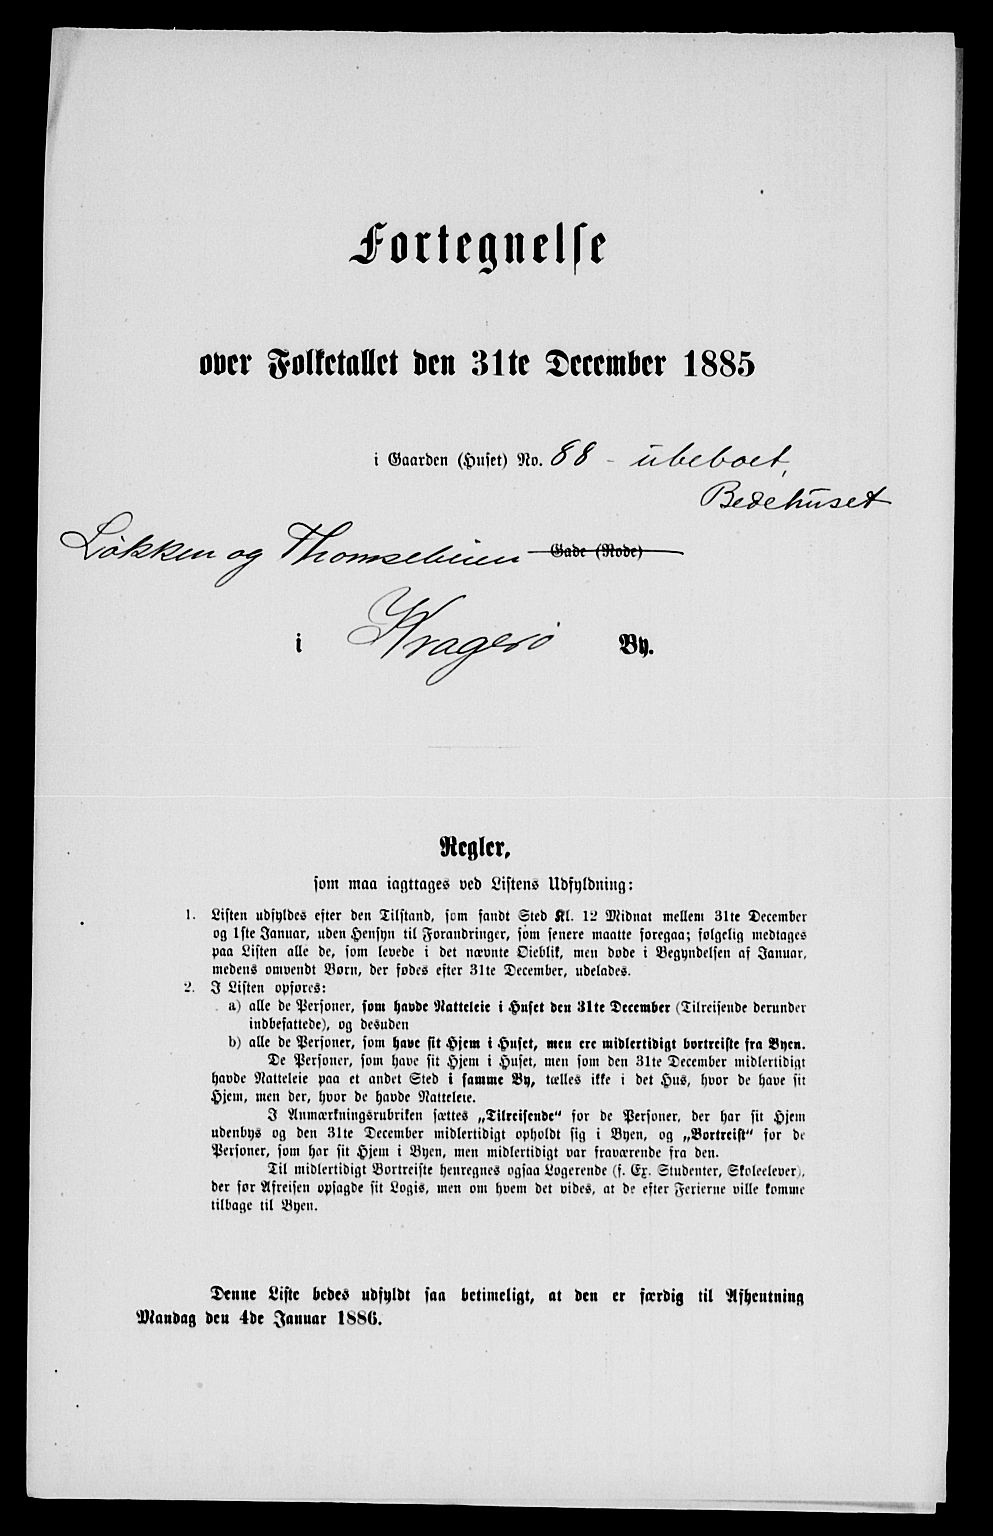 Fortegnelse
over Folketallet den 31te December 1885
i Gaarden (Huset) No. 88 - ubeboet,
Bedehuset
Løkken og Thomsebeien Gade (Rode)
i Kragerø By.
Regler,
som maa iagttages ved Listens Udfyldning:
1. Listen udfyldes efter den Tilstand, som fandt Sted Kl. 12 Midnat mellem 31te December
og 1ste Januar, uden Hensyn til Forandringer, som senere maatte foregaa; følgelig medtages
paa Listen alle de, som levede i det nævnte Øieblik, men døde i Begyndelsen af Januar,
medens omvendt Børn, der fødes efter 31te December, udelades.
2. I Listen opføres:
a) alle de Personer, som havde Natteleie i Huset den 31te December (Tilreisende derunder
indbefattede), og desuden
b) alle de Personer, som have sit Hjem i Huset, men ere midlertidigt bortreiste fra Byen.
De Personer, som have sit Hjem i Huset, men som den 31te December midlertidigt
havde Natteleie paa et andet Sted i samme By, tælles ikke i det Hus, hvor de have sit
Hjem, men der, hvor de havde Natteleie.
I Anmærkningsrubriken sættes „Tilreisende" for de Personer, der har sit Hjem
udenbys og den 31te December midlertidigt opholdt sig i Byen, og „Bortreist" for de
Personer, som har sit Hjem i Byen, men midlertidigt var fraværende fra den.
Til midlertidigt Bortreiste henregnes ogsaa Logerende (f. Ex. Studenter, Skoleelever),
der før Afreisen opsagde sit Logis, men om hvem det vides, at de efter Ferierne ville komme
tilbage til Byen.
Denne Liste bedes udfyldt saa betimeligt, at den er færdig til Afhentning
Mandag den 4de Januar 1886.